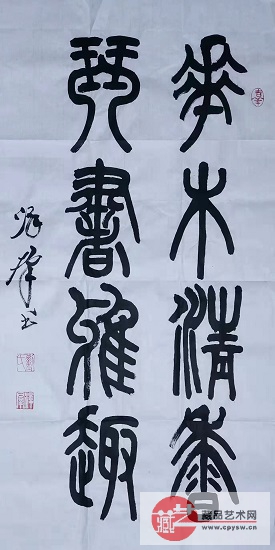 華木清香
琴書雅趣
书
藏
藏品艺术网
www.cpysw.cn